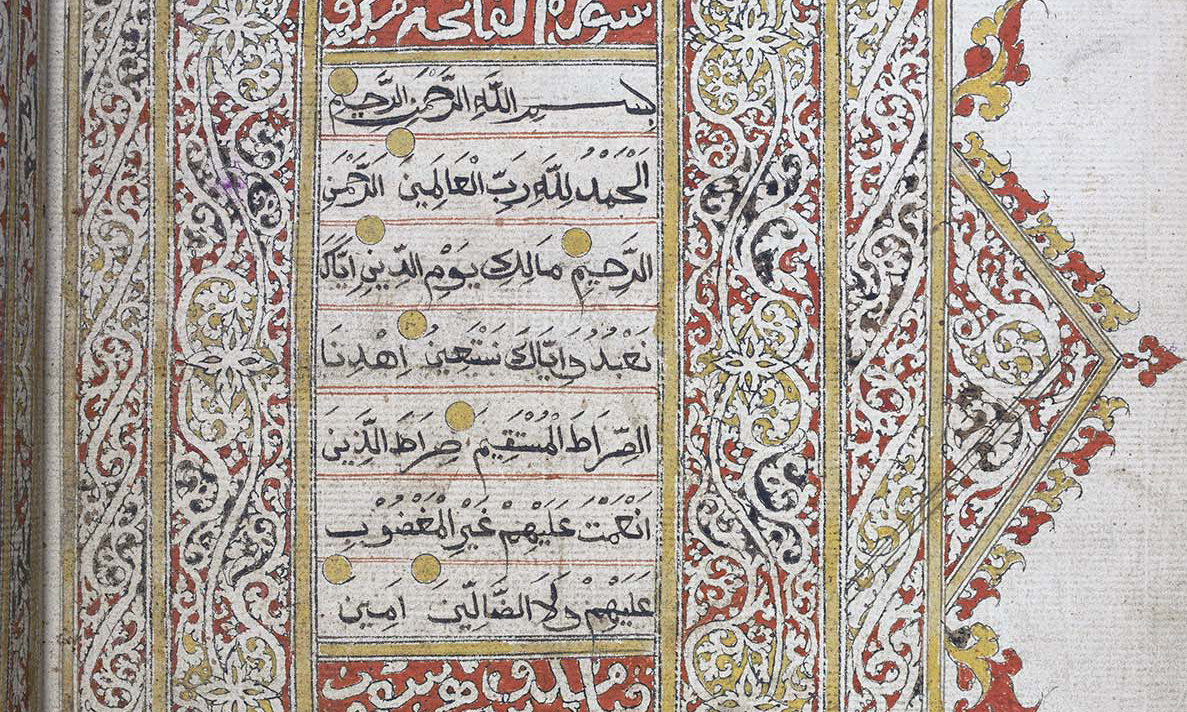 سورة الفاتحة
بِسْمِ اللَّهِ الرَّحْمَنِ الرَّحِيمِ
الْحَمْدُ لِلَّهِ رَبِّ الْعَالَمِينَ الرَّحْمَنِ
الرَّحِيمِ مَالِكِ يَوْمِ الدِّينِ اِيَّاكَ
نَعْبُدُ وَاِيَّاكَ نَسْتَعِينُ اِهْدِنَا
الصِّرَاطَ الْمُسْتَقِيمَ صِرَاطَ الَّذِينَ
اَنْعَمْتَ عَلَيْهِمْ غَيْرِ الْمَغْضُوْبِ
عَلَيْهِمْ وَلَا الضَّالِّينَ اَمِينَ